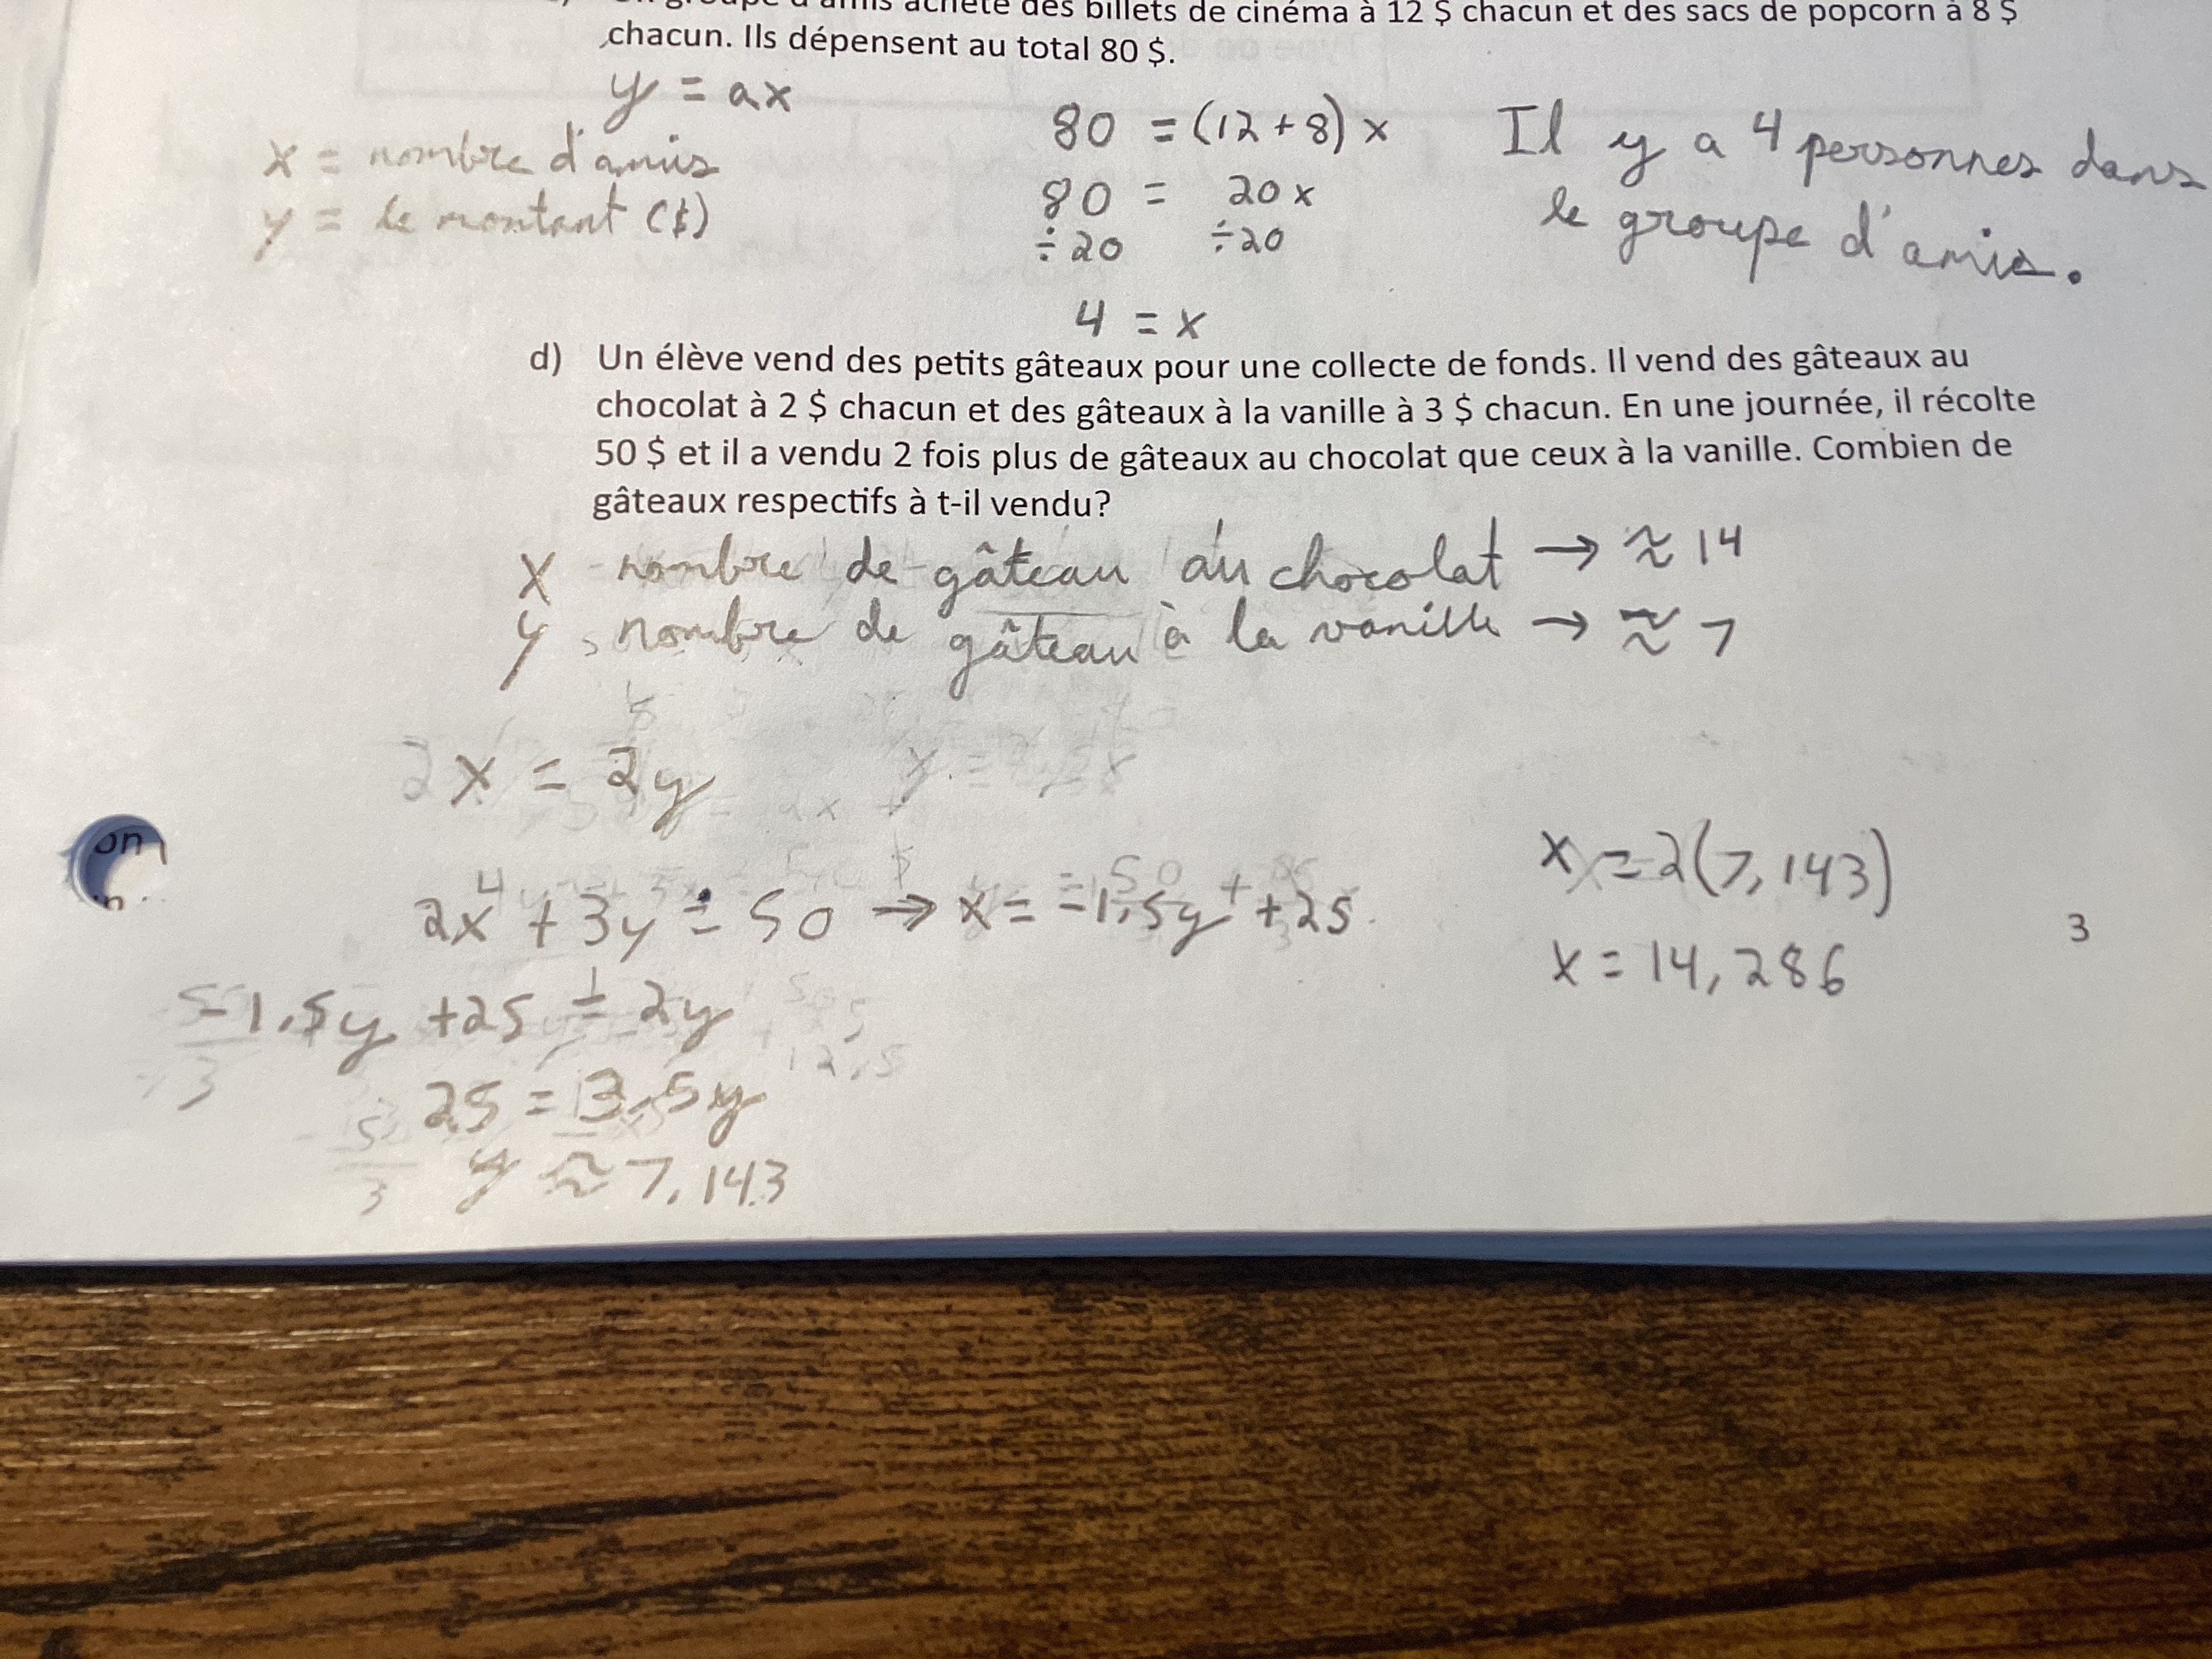 groupe d'amis achète des billets de cinéma à 12 $ chacun et des sacs de popcorn à 8 $
chacun. Ils dépensent au total 80 $.
y = ax
x = nombre d'amis
y = le montant ($)
80 = (12 + 8) x
80 = 20 x
÷ 20 ÷ 20
4 = x
Il y a 4 personnes dans
le groupe d'amis.
d) Un élève vend des petits gâteaux pour une collecte de fonds. Il vend des gâteaux au
chocolat à 2 $ chacun et des gâteaux à la vanille à 3 $ chacun. En une journée, il récolte
50 $ et il a vendu 2 fois plus de gâteaux au chocolat que ceux à la vanille. Combien de
gâteaux respectifs à t-il vendu?
x nombre de gâteau au chocolat → ≈ 14
y nombre de gâteau à la vanille → ≈ 7
x = 2y
2x + 3y = 50 → x = -1,5y + 25
-1,5y + 25 = 2y
25 = 3,5y
y ≈ 7,143
x = 2(7,143)
x = 14,286
3
on